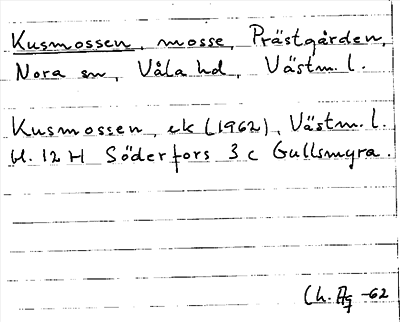 Kusmossen, mosse, Prästgården,
Nora sn, Våla hd, Västm. l.
Kusmossen, ek (1962), Västm. l.
bl. 12 H Söderfors 3 c Gullsmyra.
Ch. Ag -62